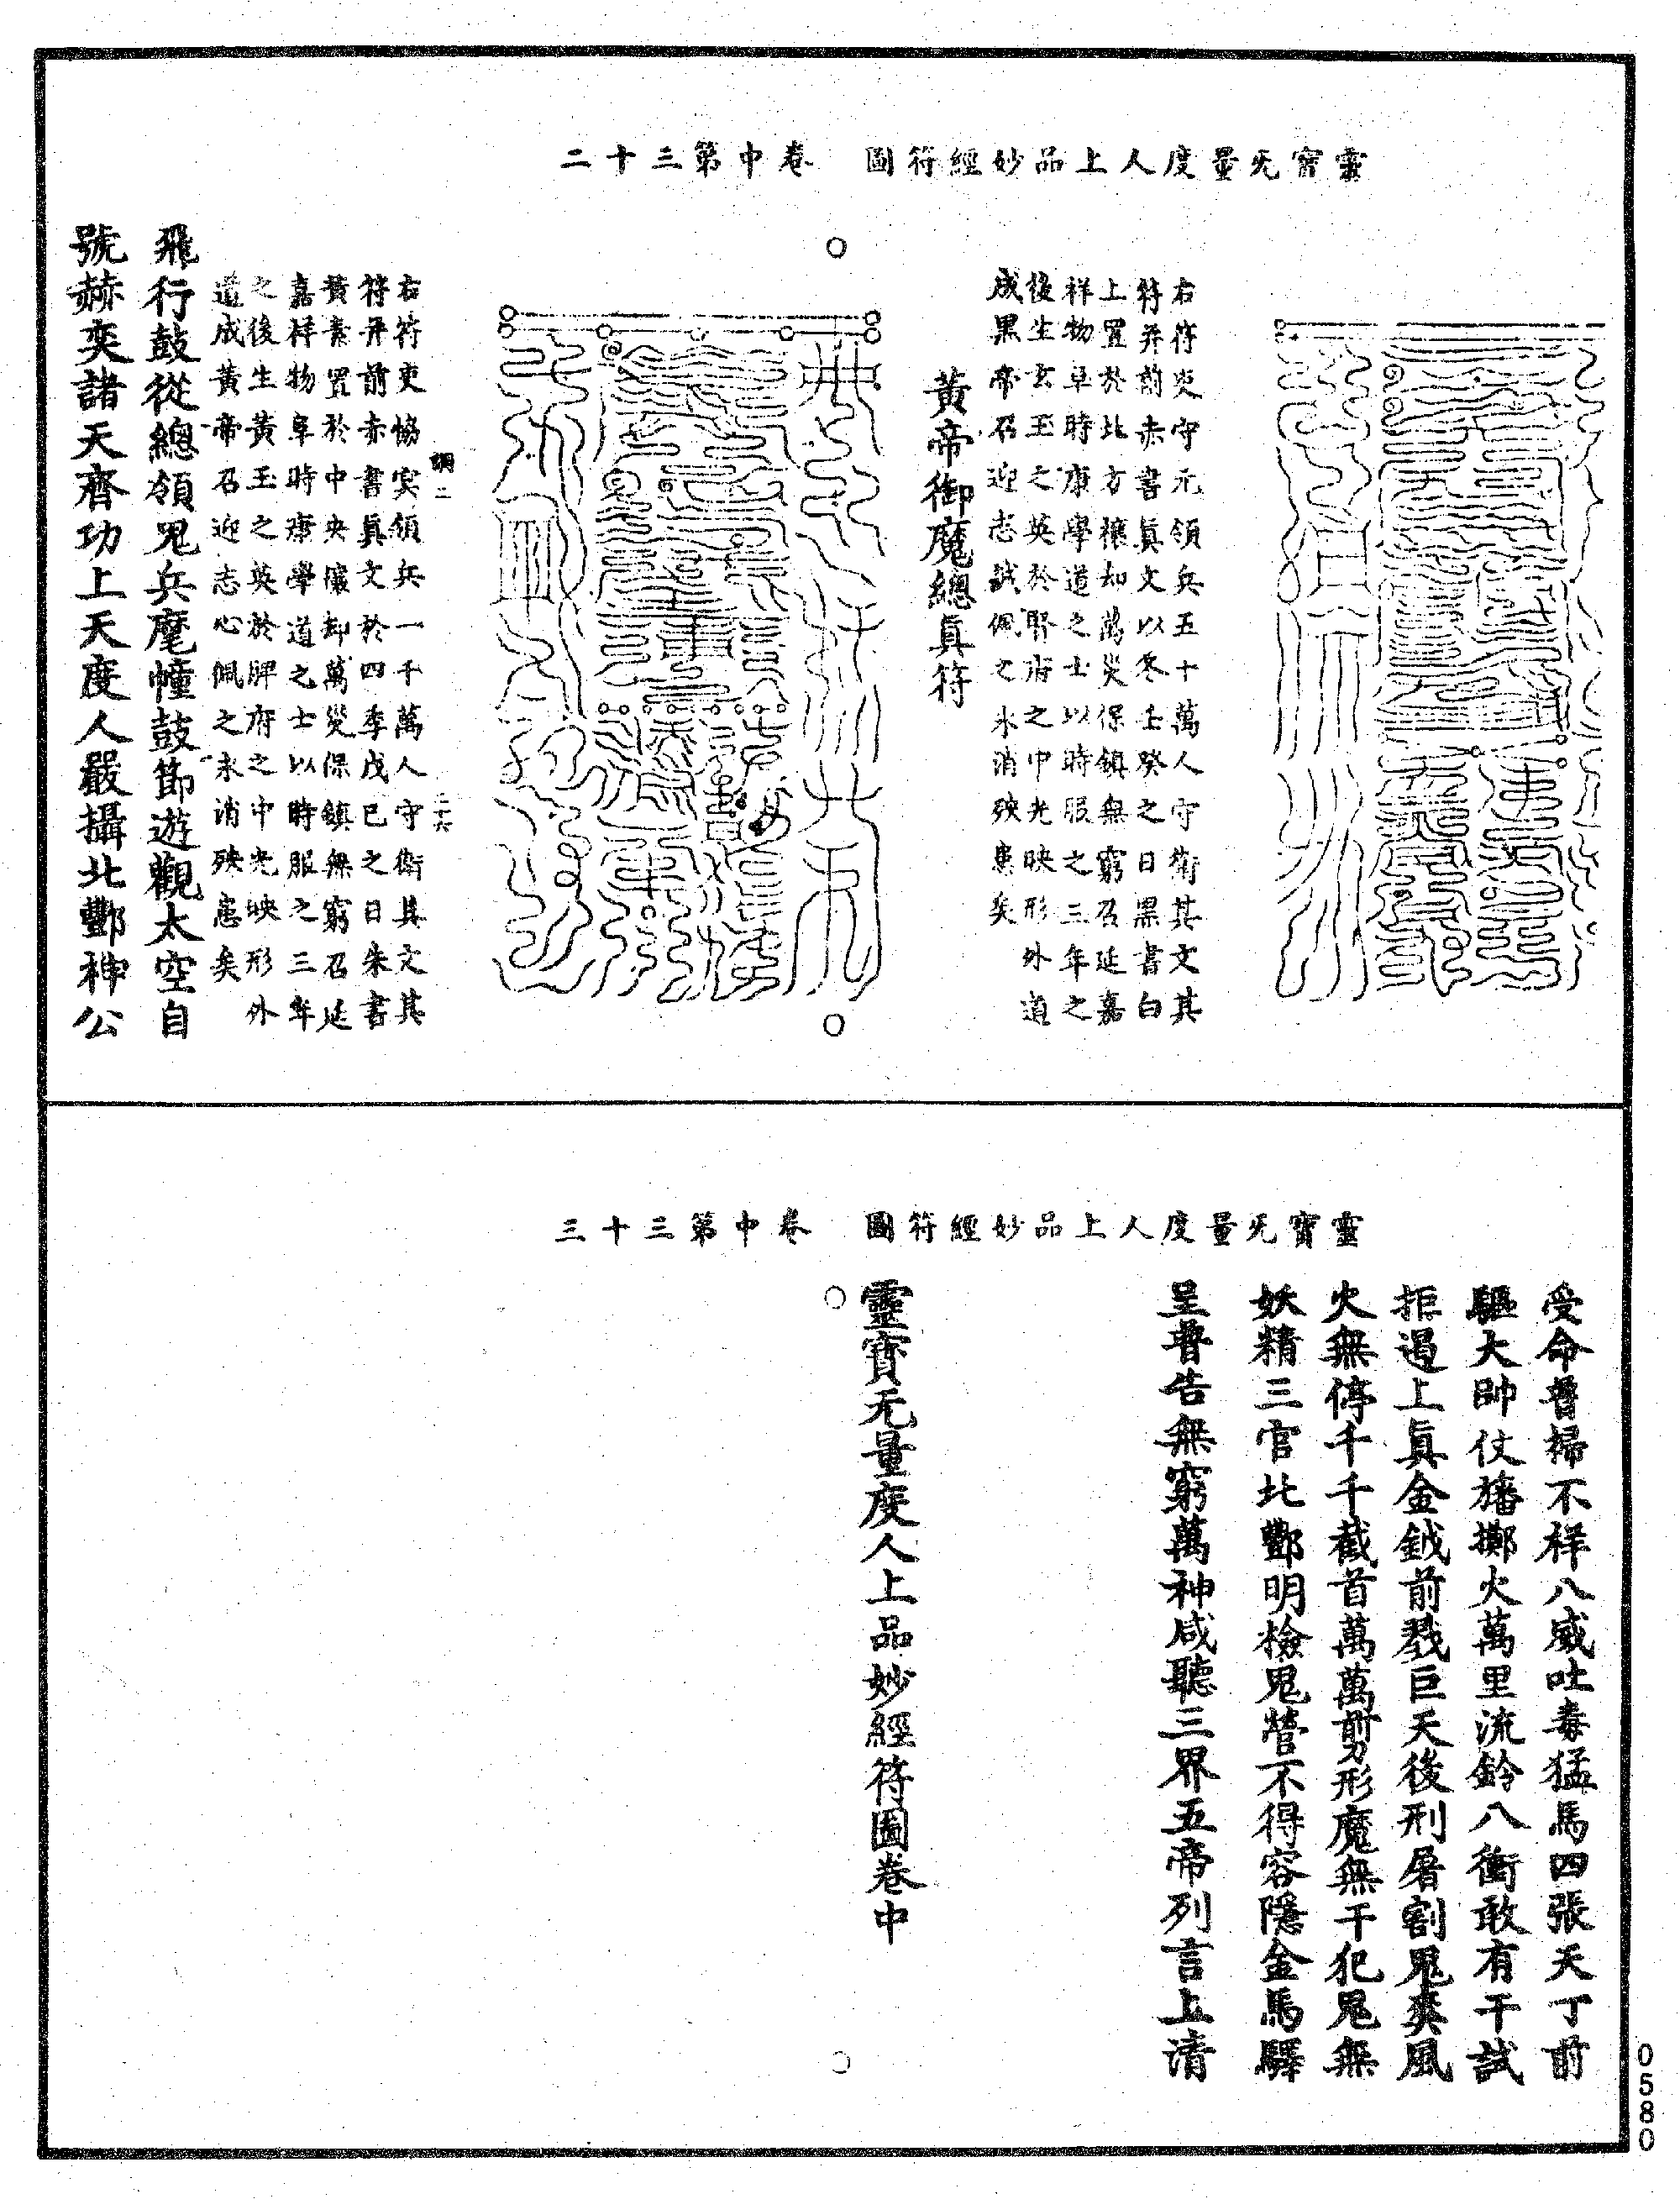 靈寶无量度人上品妙經符圖　卷中第三十二
右符災守元領兵五十萬人守衛其文其
符并前赤書眞文以冬壬癸之日黑書白
上置於北方禳却萬災保鎮無窮召延嘉
祥物阜時康學道之士以時服之三年之
後生玄玉之英於腎府之中光映形外道
成黑帝召迎志誠佩之永消殃患矣
黃帝御魔總眞符
右符吏恊寞領兵一千萬人守衛其文其
符并前赤書眞文於四季戊己之日朱書
黃素置於中央禳却萬災保鎮無窮召延
嘉祥物阜時康學道之士以時服之三年
之後生黃玉之英於脾府之中光映形外
道成黃帝召迎志心佩之永消殃患矣
飛行鼓從總領鬼兵麾幢鼓節遊觀太空自
號赫奕諸天齊功上天度人嚴攝北酆神公
靈寶无量度人上品妙經符圖　卷中第三十三
受命普掃不祥八威吐毒猛馬四張天丁前
驅大帥仗旛擲火萬里流鈴八衝敢有干試
拒遏上眞金鉞前戮巨天後刑屠割鬼爽風
火無停千千截首萬萬剪形魔無干犯鬼無
妖精三官北酆明檢鬼營不得容隱金馬驛
呈普告無窮萬神咸聽三界五帝列言上清
靈寶无量度人上品妙經符圖卷中
0580